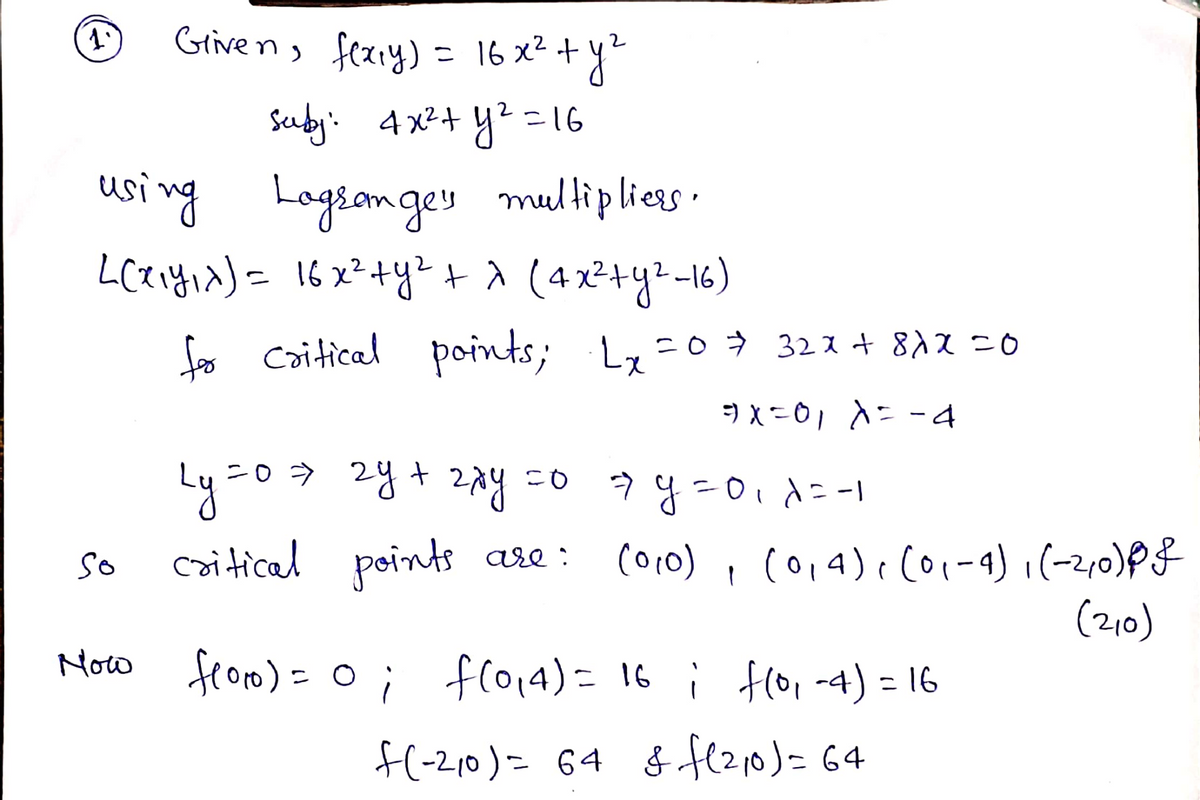 1. Given, f(x,y) = 16x² + y²
subj: 4x² + y² = 16
using Lagranges multipliers.
L(x,y,λ) = 16x² + y² + λ (4x² + y² - 16)
for critical points; Lx = 0 ⇒ 32x + 8λx = 0
⇒ x = 0, λ = -4
Ly = 0 ⇒ 2y + 2λy = 0 ⇒ y = 0, λ = -1
so critical points are: (0,0), (0,4), (0,-4), (-2,0) &
(2,0)
Now f(0,0) = 0 ; f(0,4) = 16 ; f(0,-4) = 16
f(-2,0) = 64 & f(2,0) = 64